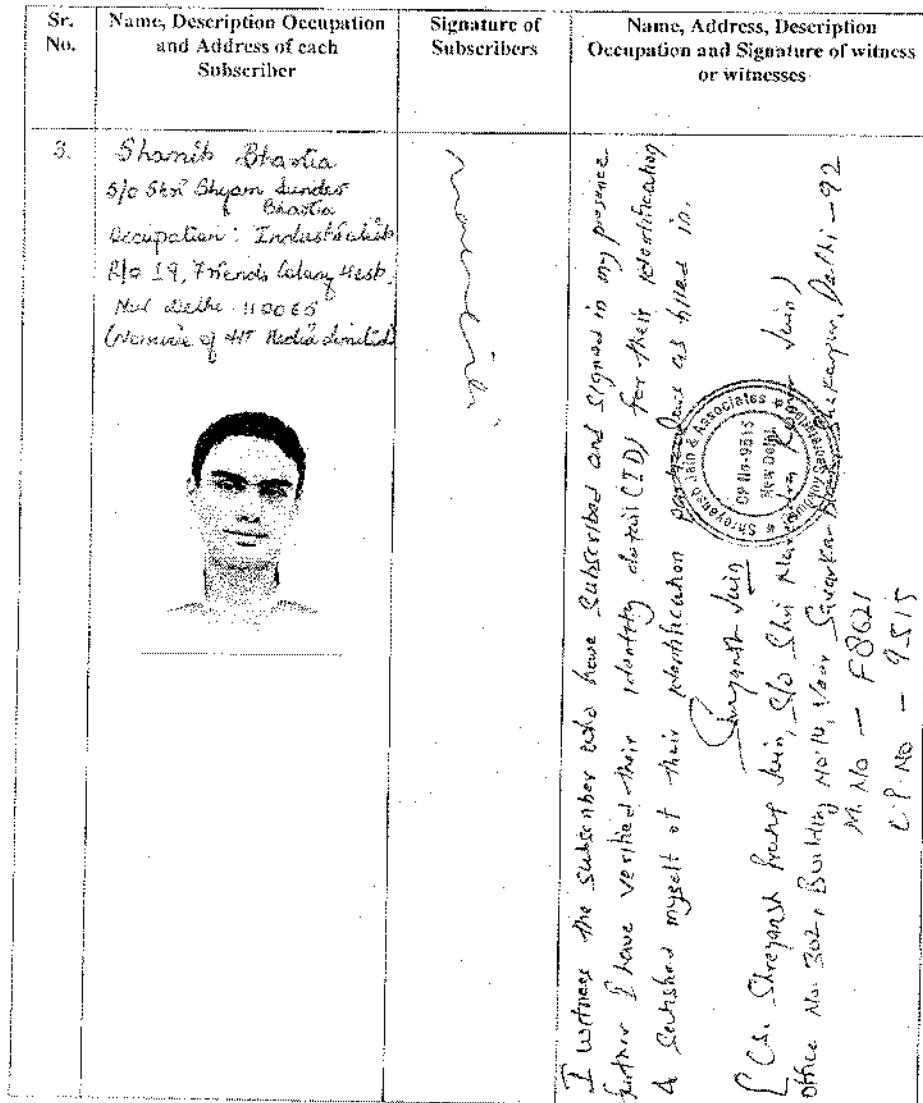 Sr. No.
Name, Description Occupation and Address of each Subscriber
Signature of Subscribers
Name, Address, Description Occupation and Signature of witness or witnesses
3.
Shamit Bhartia
S/o Shri Shyam Sunder
Bhartia
Occupation: Industrialist
R/o 19, Friends Colony West,
New Delhi 110065
(Nominee of HT Media Limited)
I witness the subscriber who have subscribed and signed in my presence
further I have verified their identity detail (ID) for their identification
& satisfied myself of their identification as filled in.
Shreyansh Jain
[CS. Shreyansh Jain, S/o Shri Jain)
Office No. 302, Building No 14, Veer Savarkar Shakarpur, Delhi - 92
M. No - F8621
C.P. No - 9515
Shreyansh Jain & Associates
Company Secretaries
CP No-9515
New Delhi